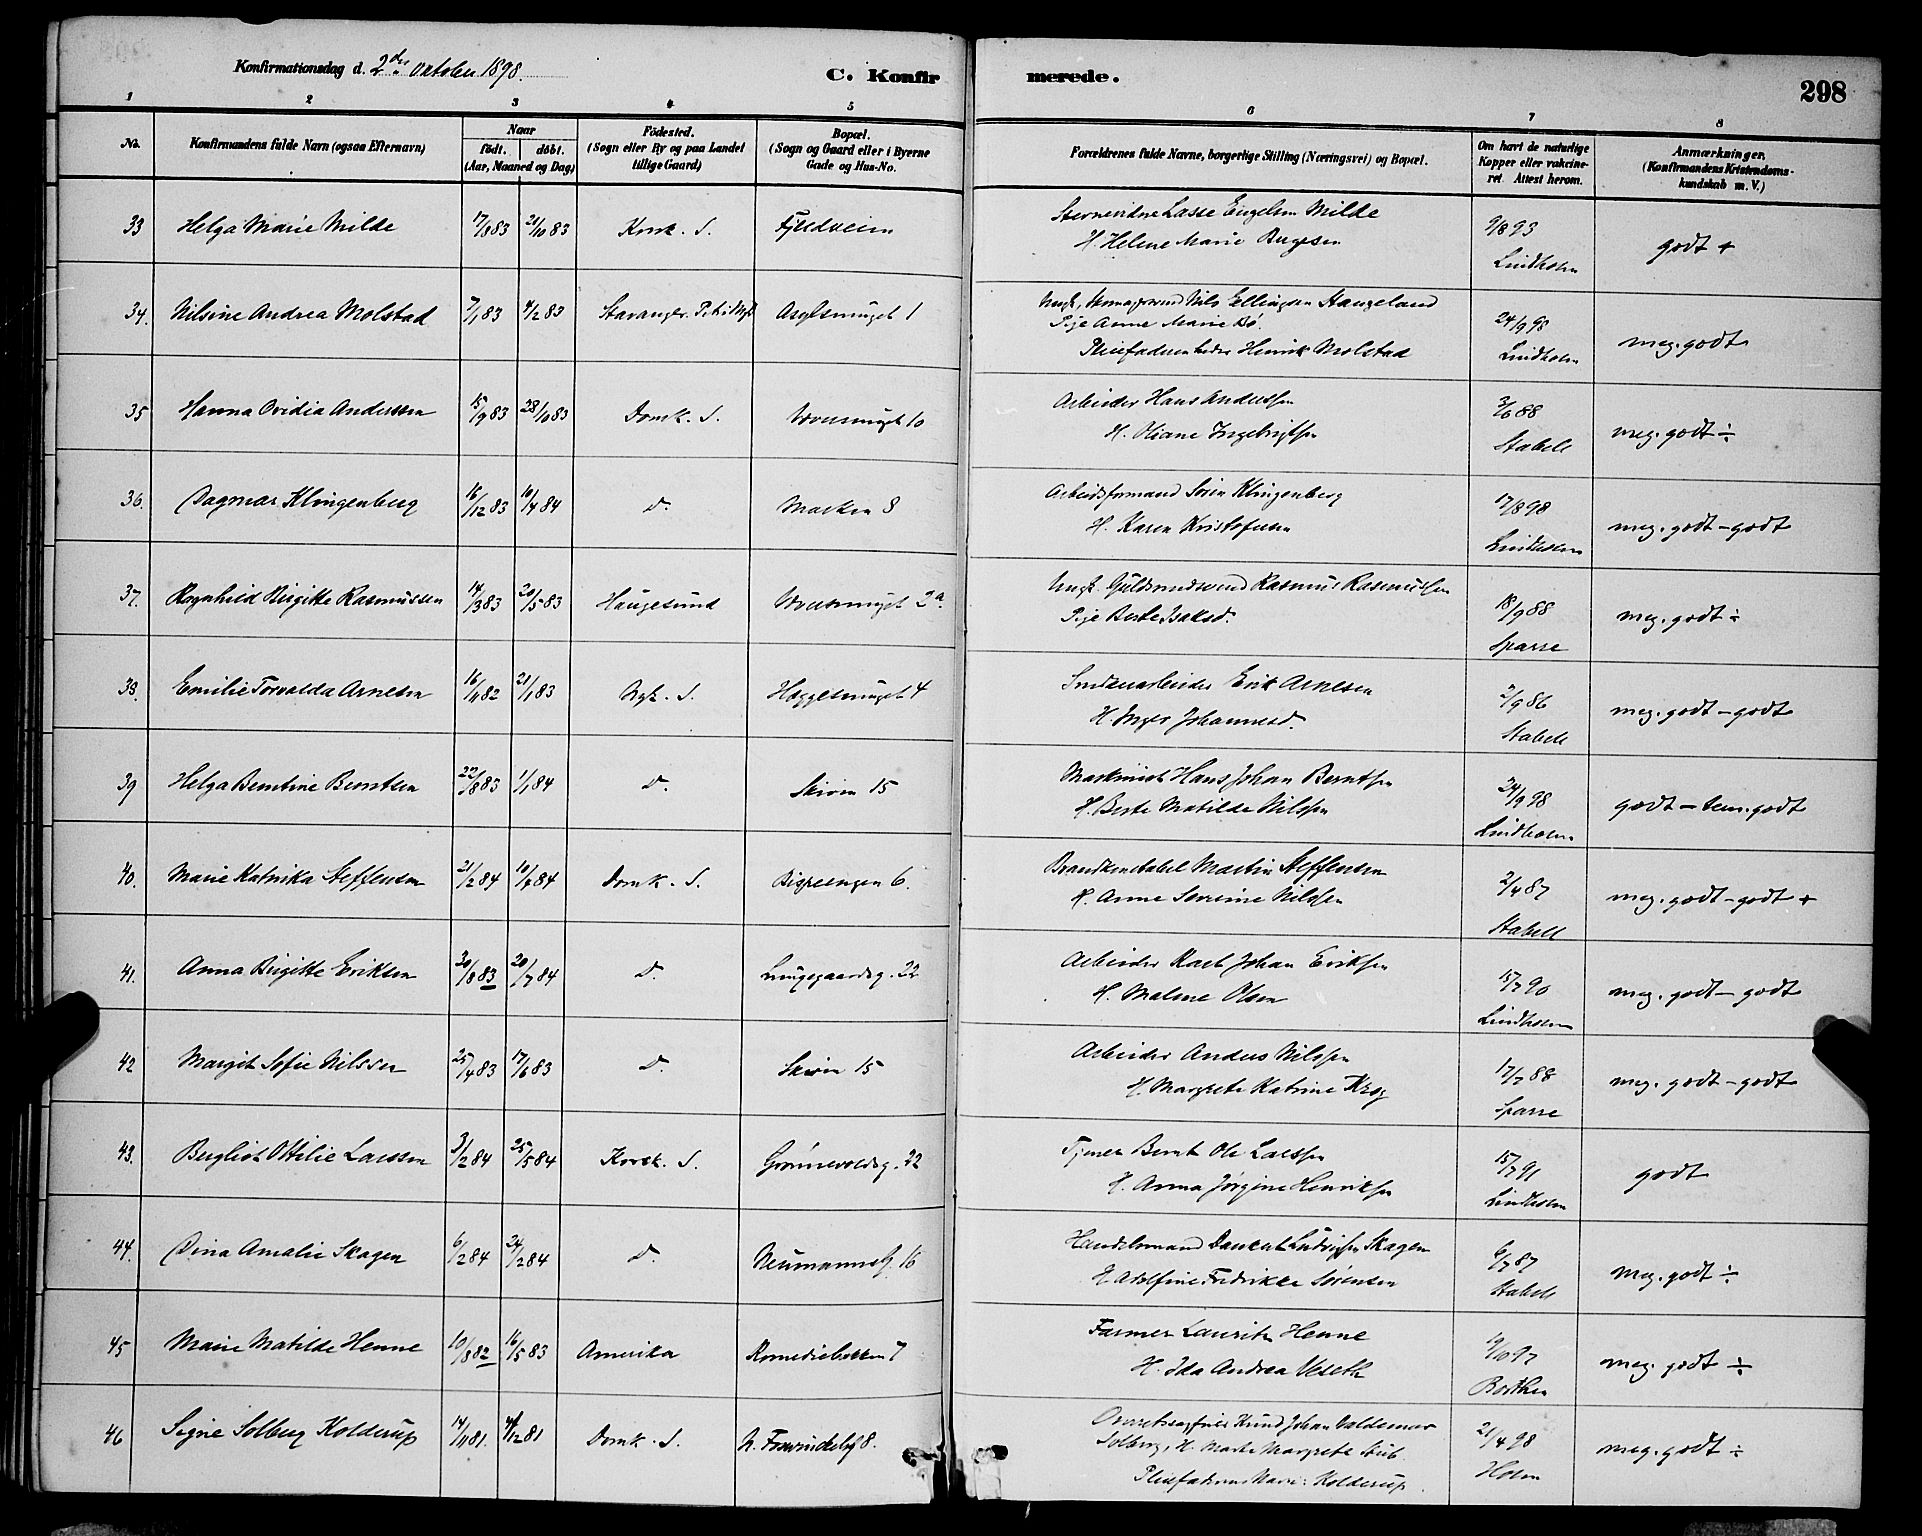 Konfirmationsdag d. 2den Oktober 1898.
C. Konfirmerede.
298
1 2 3 4 5 6 7 8
No.
Konfirmandens fulde Navn (ogsaa Efternavn)
Naar
födt. döbt.
(Aar, Maaned og Dag)
Födested.
(Sogn eller By og paa Landet
tillige Gaard)
Bopæl.
(Sogn og Gaard eller i Byerne
Gade og Hus-No.
Forældrenes fulde Navne, borgerlige Stilling (Næringsvei) og Bopæl.
Om havt de naturlige
Kopper eller vakcine-
ret. Attest herom.
Anmærkninger.
(Konfirmandens Kristendoms-
kundskab m. V.)
33 Helga Marie Milde 17/8 83 21/10 83 Korsk. S. Fjeldveien
Lasse Engelsen Milde
H. Helene Marie
9/8 93
Lindholm
godt +
34. Nilsine Andrea Molstad 7/1 83 4/2 83 Stavanger Asylsmuget 1
Nils Ellingsen Haugeland
Pige Anne Marie Bø.
Henrik Molstad
24/9 98
Lindholm
meg. godt
35 Hanna Ovidia Anderssen 15/9 83 28/10 83 Domk. S. 10
Arbeider Hans Anderssen
H. Oliane Ingebrigtsen
3/6 88
Stabell
meg. godt ÷
36. Dagmar Klingenberg 16/12 83 10/4 84 D. Marken 8
Arbeidsformand Søren Klingenberg
H. Karen Kristofersen
17/8 98
Lindholm
meg. godt - godt
37. Ragnhild Birgitte Rasmussen 14/3 83 20/5 83 Haugesund 2a.
Ungk. Guldsmedsvend Rasmus Rasmussen
Pige Berte Isaksd.
18/9 88
Sparre
meg. godt ÷
38. Emilie Torvalda Arnesen 16/11 82 21/1 83 Nyk. S. Heggesmuget 4
Erik Arnesen
H. Inger Johannesd.
2/9 86
Stabell
meg. godt - godt
39 Helga Berntine Berntsen 22/8 83 1/1 84 D. Skiven 15
Maskinist Hans Johan Berntsen
H. Berte Matilde Nilssen
24/9 98
Lindholm
godt - tem. godt
40. Marie Katinka Steffensen 21/2 84 10/4 84 Domk. S. Bispeengen 6.
Brandkonstabel Martin Steffensen
H. Anne Severine Nilssen
2/4 87
Stabell
meg. godt - godt +
41. Anna Birgitte Eriksen 30/8 83 20/7 84 D. Lungegaardsg. 22
Arbeider Karl Johan Eriksen
H. Malene Olsen
15/7 90
Lindholm
meg. godt - godt
42 Margit Sofie Nilssen 25/4 83 17/6 83 D. Skiven 15
Arbeider Anders Nilssen
H. Margrete Katrine Krog
17/7 88
Sparre
meg. godt - godt
43. Bergliot Ottilie Larssen 3/2 84 25/5 84 Korsk. S. Grønnevoldsg. 22
Tjener Bernt Ole Larssen
H. Anna Jørgine Henriksen
15/7 91
Lindholm
godt
44. Dina Amalie Skagen 6/2 84 24/2 84 D. Neumannsg. 16
Handelsmand Dankert Ludvigsen Skagen
H. Adolfine Fredrikke Sørensen
6/7 87
Stabell
meg. godt ÷
45 Marie Matilde Henne 10/8 82 16/5 83 Amerika Komediebakken 7
Farmer Lauritz Henne
H. Ida Andrea Veseth
19/10 97
Borthen
meg. godt ÷
46 Signe Solberg Kolderup 14/11 81. 4/12 81 Domk. S. 8.
Knud Johan Valdemar
Solberg, H. Marte Margrete Stub
Kolderup
21/4 98
Holm
meg. godt ÷